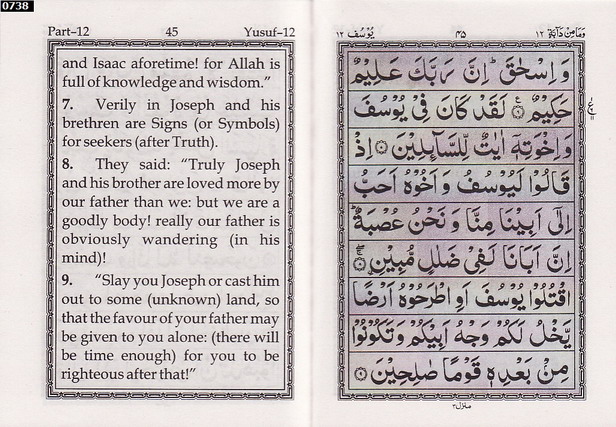 0738
Part–12 45 Yusuf–12
and Isaac aforetime! for Allah is
full of knowledge and wisdom.”
7. Verily in Joseph and his
brethren are Signs (or Symbols)
for seekers (after Truth).
8. They said: “Truly Joseph
and his brother are loved more by
our father than we: but we are a
goodly body! really our father is
obviously wandering (in his
mind)!
9. “Slay you Joseph or cast him
out to some (unknown) land, so
that the favour of your father may
be given to you alone: (there will
be time enough) for you to be
righteous after that!”
وما من دآبة ١٢ ٤٥ يوسف ١٢
وَ اِسْحٰقَ ؕ اِنَّ رَبَّكَ عَلِيْمٌ
حَكِيْمٌ ۟ لَقَدْ كَانَ فِيْ يُوْسُفَ
وَ اِخْوَتِهٖۤ اٰيٰتٌ لِّلسَّآىِٕلِيْنَ ۟ اِذْ
قَالُوْا لَيُوْسُفُ وَ اَخُوْهُ اَحَبُّ
اِلٰۤى اَبِيْنَا مِنَّا وَ نَحْنُ عُصْبَةٌ ؕ
اِنَّ اَبَانَا لَفِيْ ضَلٰلٍ مُّبِيْنِ ۟
اقْتُلُوْا يُوْسُفَ اَوِ اطْرَحُوْهُ اَرْضًا
يَّخْلُ لَكُمْ وَجْهُ اَبِيْكُمْ وَ تَكُوْنُوْا
مِنْ بَعْدِهٖ قَوْمًا صٰلِحِيْنَ ۟
منزل ٣